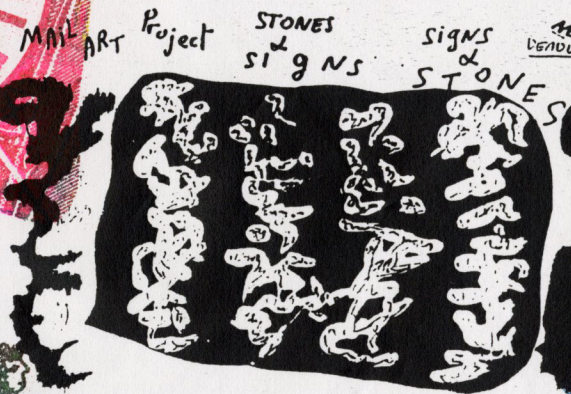 MAIL ART Project
STONES
&
SIGNS
SIGNS
&
STONES